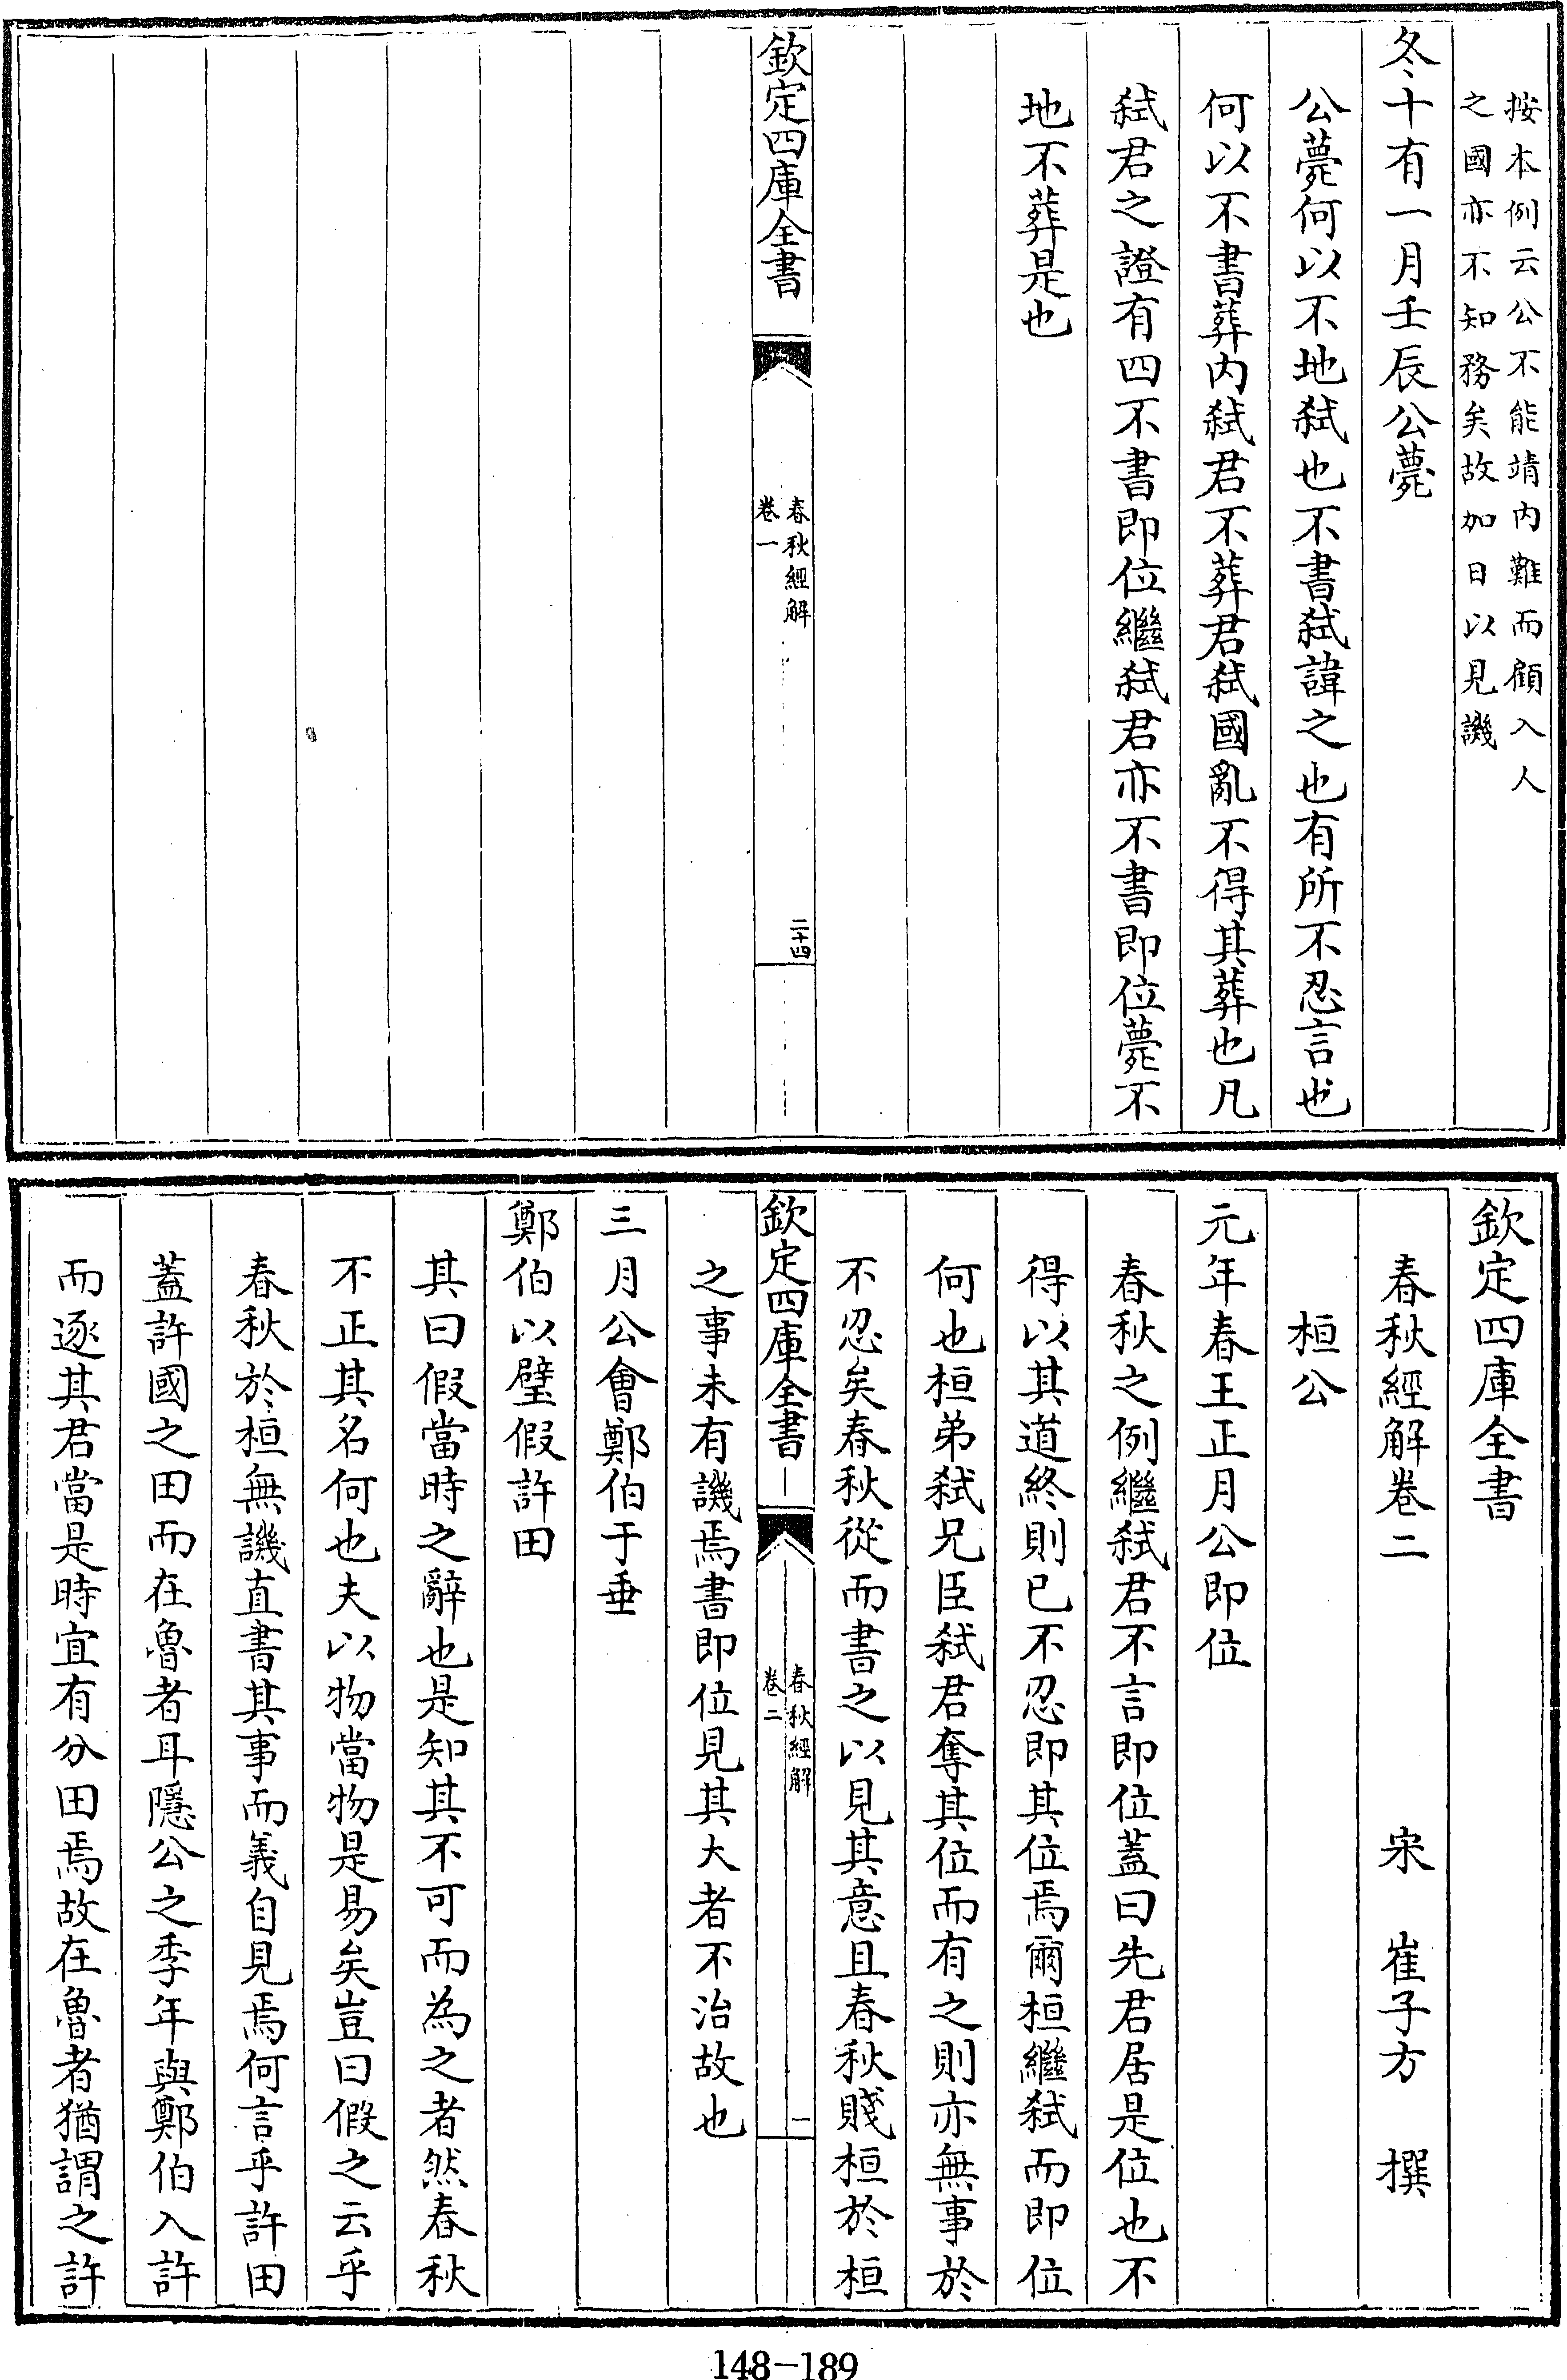 按本例云公不能靖内難而顧入人
之國亦不知務矣故加日以見譏
冬十有一月壬辰公薨
公薨何以不地弑也不書弑諱之也有所不忍言也
何以不書葬内弑君不葬君弑國亂不得其葬也凡
弑君之證有四不書即位繼弑君亦不書即位薨不
地不葬是也
欽定四庫全書
春秋經解
卷一
二十四
欽定四庫全書
春秋經解卷二
宋 崔子方 撰
桓公
元年春王正月公即位
春秋之例繼弑君不言即位蓋曰先君居是位也不
得以其道終則已不忍即其位焉爾桓繼弑而即位
何也桓弟弑兄臣弑君奪其位而有之則亦無事於
不忍矣春秋從而書之以見其意且春秋賤桓於桓
欽定四庫全書
春秋經解
卷二
一
之事未有譏焉書即位見其大者不治故也
三月公會鄭伯于垂
鄭伯以璧假許田
其曰假當時之辭也是知其不可而為之者然春秋
不正其名何也夫以物當物是易矣豈曰假之云乎
春秋於桓無譏直書其事而義自見焉何言乎許田
蓋許國之田而在魯者耳隱公之季年與鄭伯入許
而逐其君當是時宜有分田焉故在魯者猶謂之許
148-189